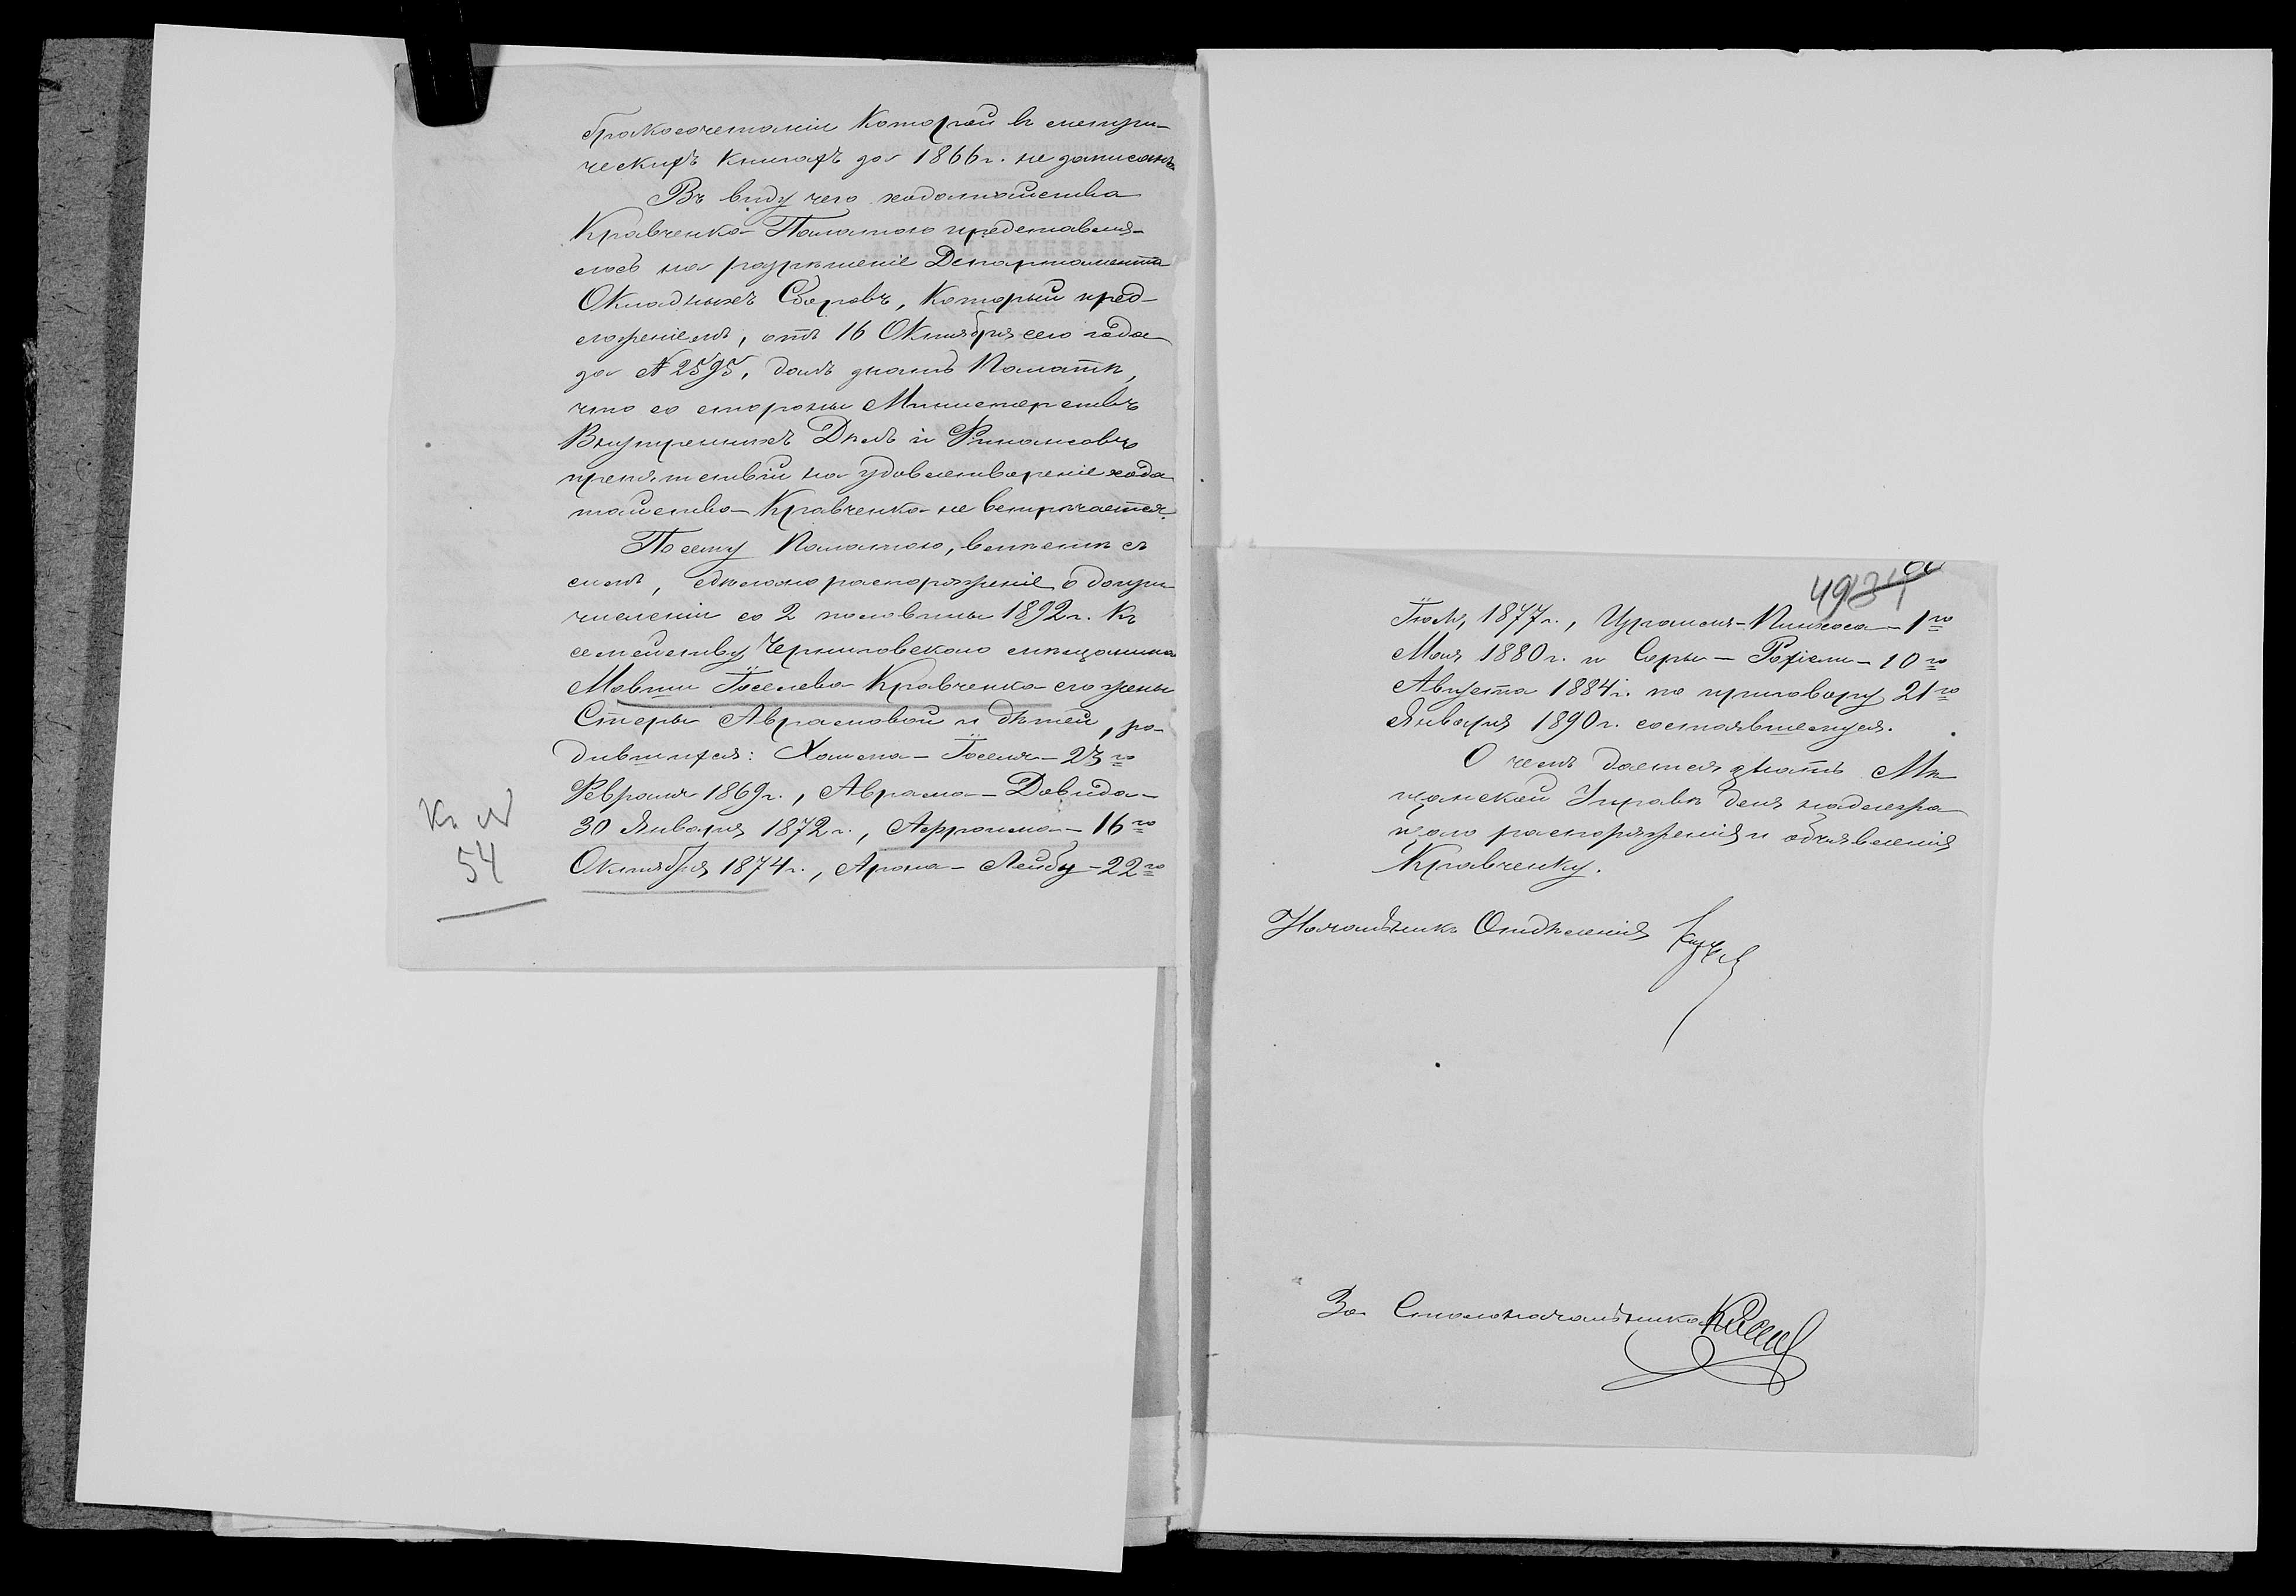 бракосочетаніи которой въ метри-
ческихъ книгахъ за 1866 г. не записанъ
Въ виду чего ходатайства
Кравченка Палатою представля-
лось на разрѣшеніе Департамента
Окладныхъ Сборовъ, который пред-
ложеніемъ, отъ 16 Октября сего года
за № 2595, далъ знать Палатѣ,
что со стороны Министерствъ
Внутреннихъ Дѣлъ и Финансовъ
препятствій на удовлетвореніе хода
тайства Кравченка не встрѣчается.
По сему Палатою, вмѣстѣ съ
симъ, сдѣлано распоряженіе о допри-
численіи со 2 половины 1892 г. къ
семейству Черниговскаго мѣщанина
Мовши Іоселева Кравченка его жены
Стеры Аврамовой и дѣтей, ро-
дившихся: Хаима-Іоселя - 23го
Февраля 1869 г., Аврама-Довида -
30 Января 1872 г., Афроима - 16го
Октября 1874 г., Арона-Лейбу - 22го
Къ №
54
49
Іюля, 1877 г., Израиля-Пинхоса - 1го
Мая 1880 г. и Соры-Рохіели - 10го
Августа 1884 г. по приговору 21го
Января 1890 г. состоявшемуся.
О чемъ дается знать Мѣ
щанской Управѣ для надлежа
щаго распоряженія и объявленія
Кравченку.
Начальникъ Отдѣленія
За Столоначальника